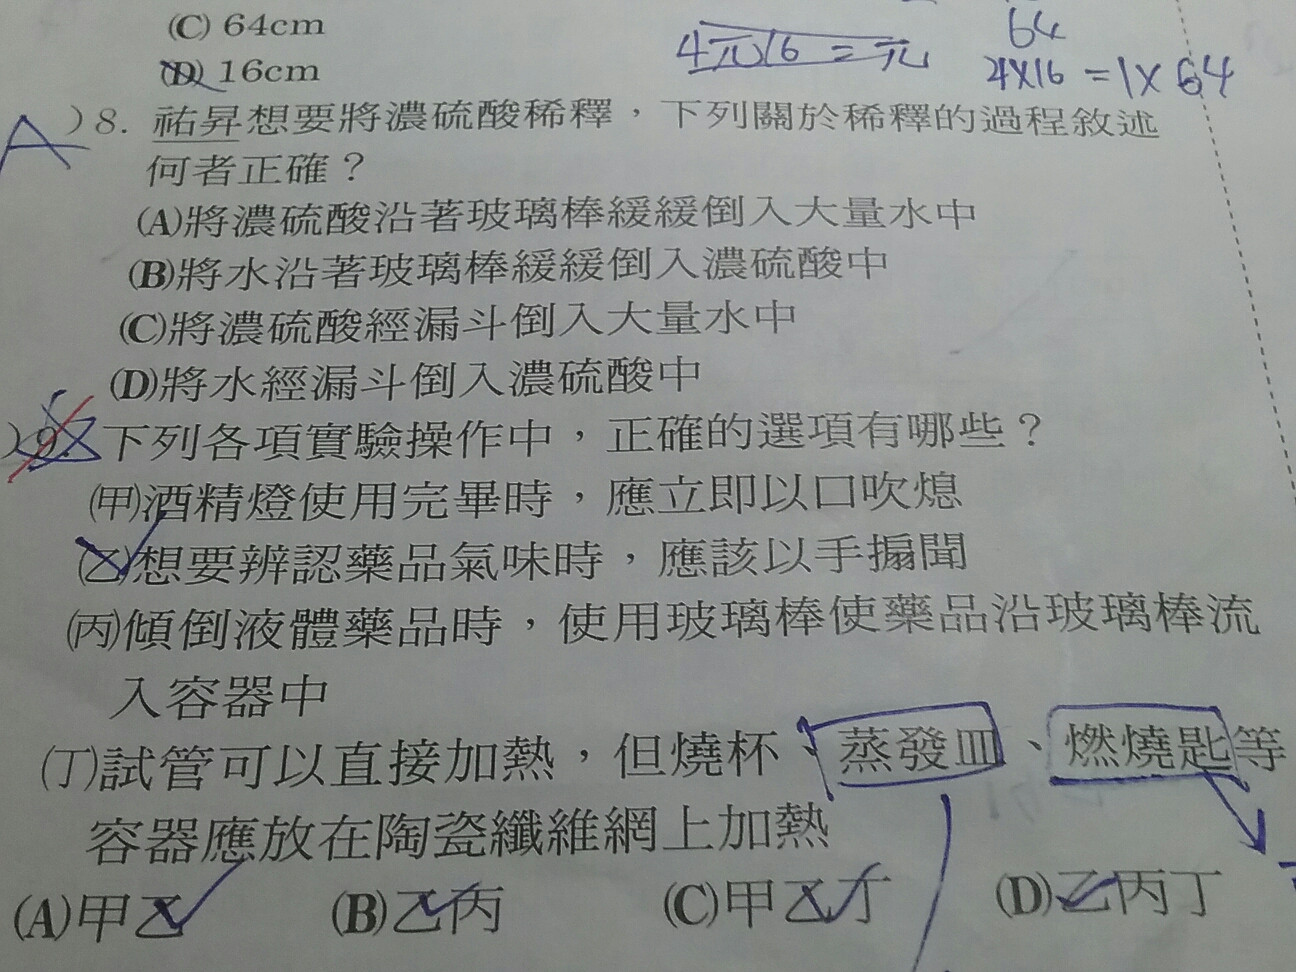 (C) 64cm
(D) 16cm
64
4π16 = π
4×16 = 1×64
A
)8. 祐昇想要將濃硫酸稀釋，下列關於稀釋的過程敘述
何者正確？
(A)將濃硫酸沿著玻璃棒緩緩倒入大量水中
(B)將水沿著玻璃棒緩緩倒入濃硫酸中
(C)將濃硫酸經漏斗倒入大量水中
(D)將水經漏斗倒入濃硫酸中
)9. 下列各項實驗操作中，正確的選項有哪些？
(甲)酒精燈使用完畢時，應立即以口吹熄
(乙)想要辨認藥品氣味時，應該以手搧聞
(丙)傾倒液體藥品時，使用玻璃棒使藥品沿玻璃棒流
入容器中
(丁)試管可以直接加熱，但燒杯、蒸發皿、燃燒匙等
容器應放在陶瓷纖維網上加熱
(A)甲乙 (B)乙丙 (C)甲乙丁 (D)乙丙丁